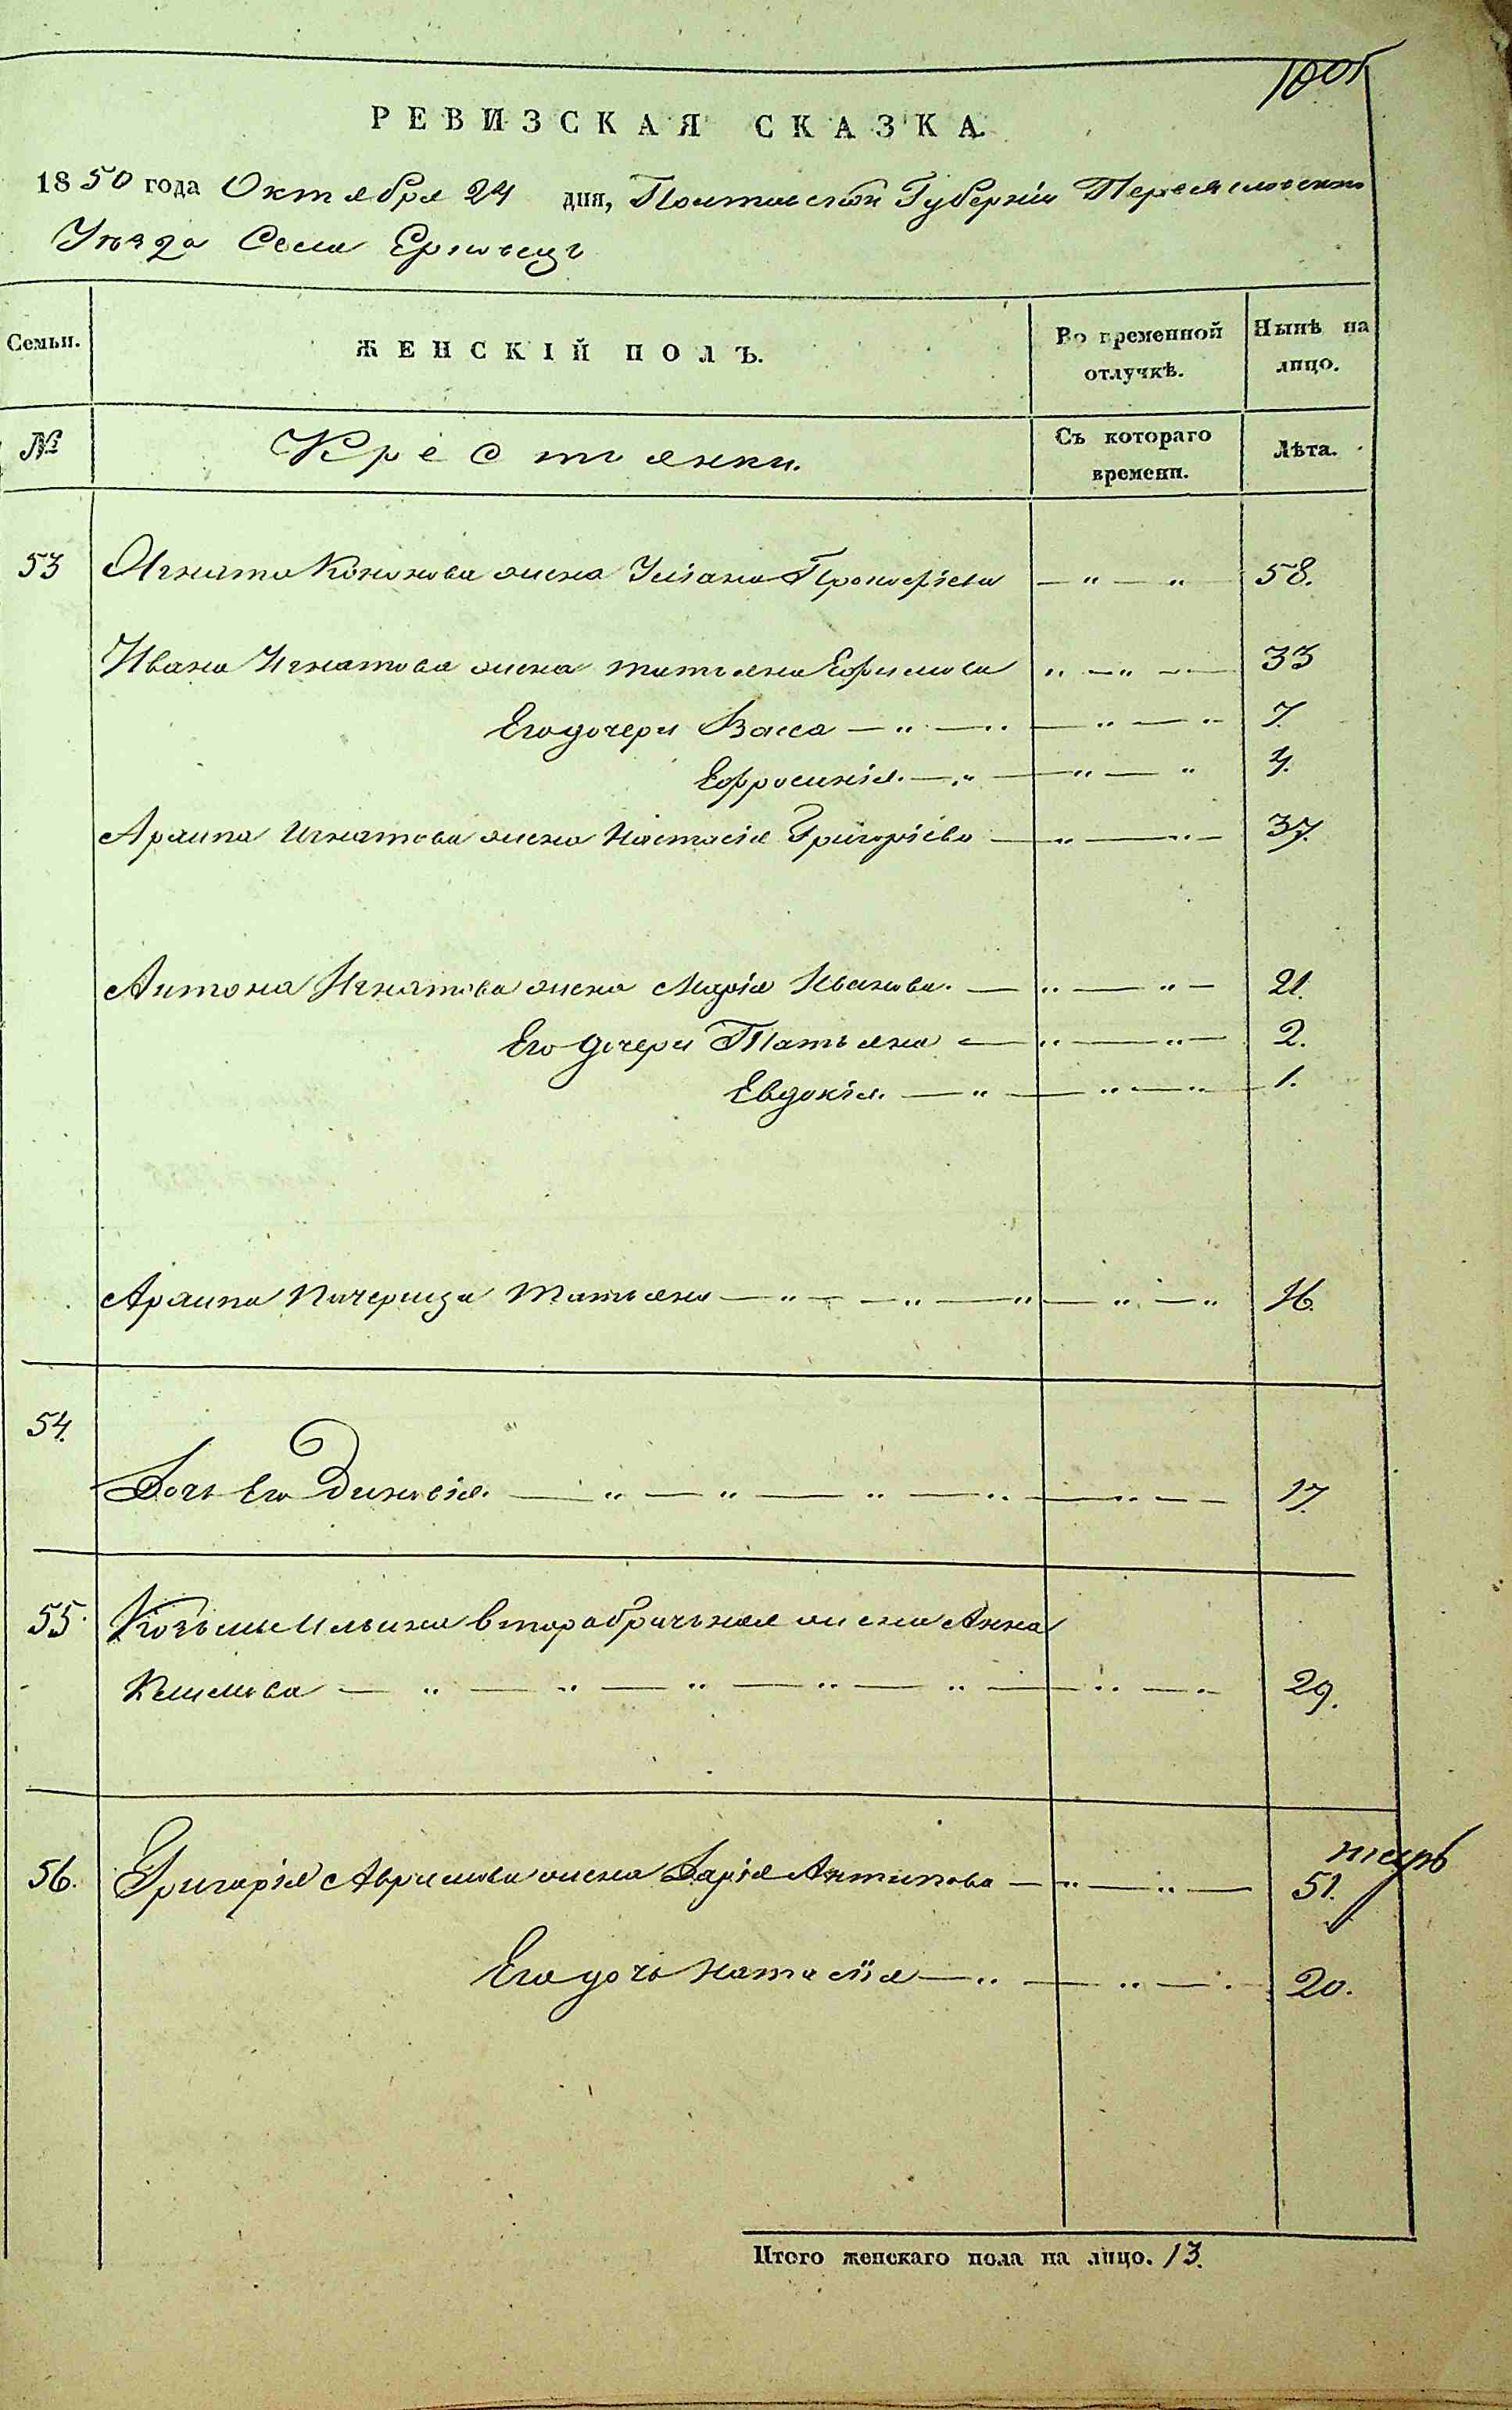 1001
РЕВИЗСКАЯ СКАЗКА.
1850 года Октября 24 дня, Полтавской Губернiи Переяславскаго
Уѣзда Села Ерковецъ
Семьи. ЖЕНСКIЙ ПОЛЪ. Во временной отлучкѣ. Нынѣ на лицо.
№ Крестьянки. Съ котораго времени. Лѣта.
53 Игната Кононова жена Улiана Прокофiева — " — " 58.
Ивана Игнатова жена татьяна Ефимова " — " — 33
Его дочери Васса — " — " — " — " 7.
Ефросинiя. — " — " — " 4.
Архипа Игнатова жена Настасiя Григорiева — " — " — 37.
Антона Игнатова жена Марiя Иванова. — " — " — 21.
Его дочери Татьяна — " — " — 2.
Евдокiя. — " — " — " — 1.
Архипа Татьяна — " — — " — " — " — " 16.
54.
Дочь Его Зиновiя. — " — " — " — " — " — — 17.
55. Козьмы Ильина вторабрачьная жена Анна
Климова — " — " — " — " — " — " — " 29.
56. Григорiя Аврамова жена Дарiя Антипова — " — " — 51.
Его дочь Натасiя — " — " — " 20.
Итого женскаго пола на лицо. 13.